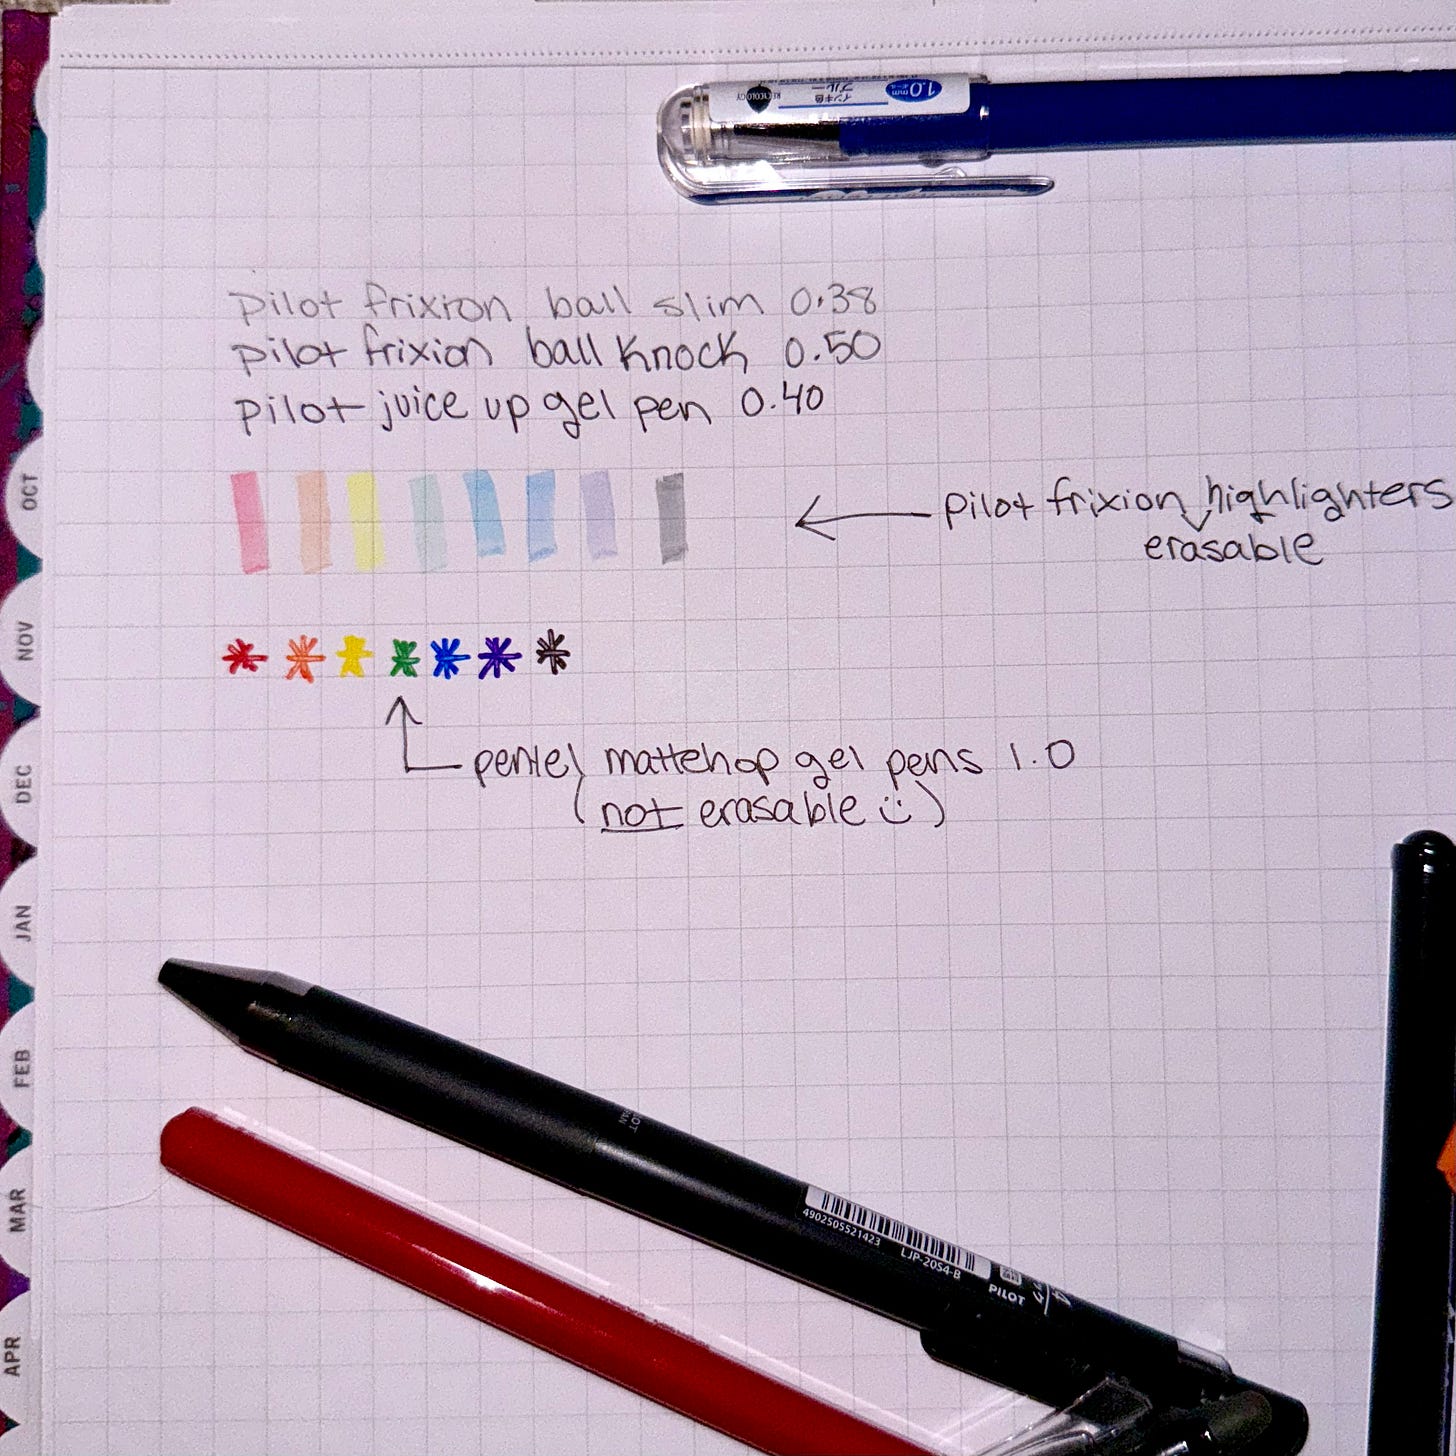 1.0mm
ボール
インキ色
ブルー
RECYCOLOGY
pilot frixion ball slim 0.38
pilot frixion ball knock 0.50
pilot juice up gel pen 0.40
pilot frixion highlighters
erasable
pentel mattehop gel pens 1.0
(not erasable ü)
OCT
NOV
DEC
JAN
FEB
MAR
APR
4902505521423
LJP-20S4-B
PILOT